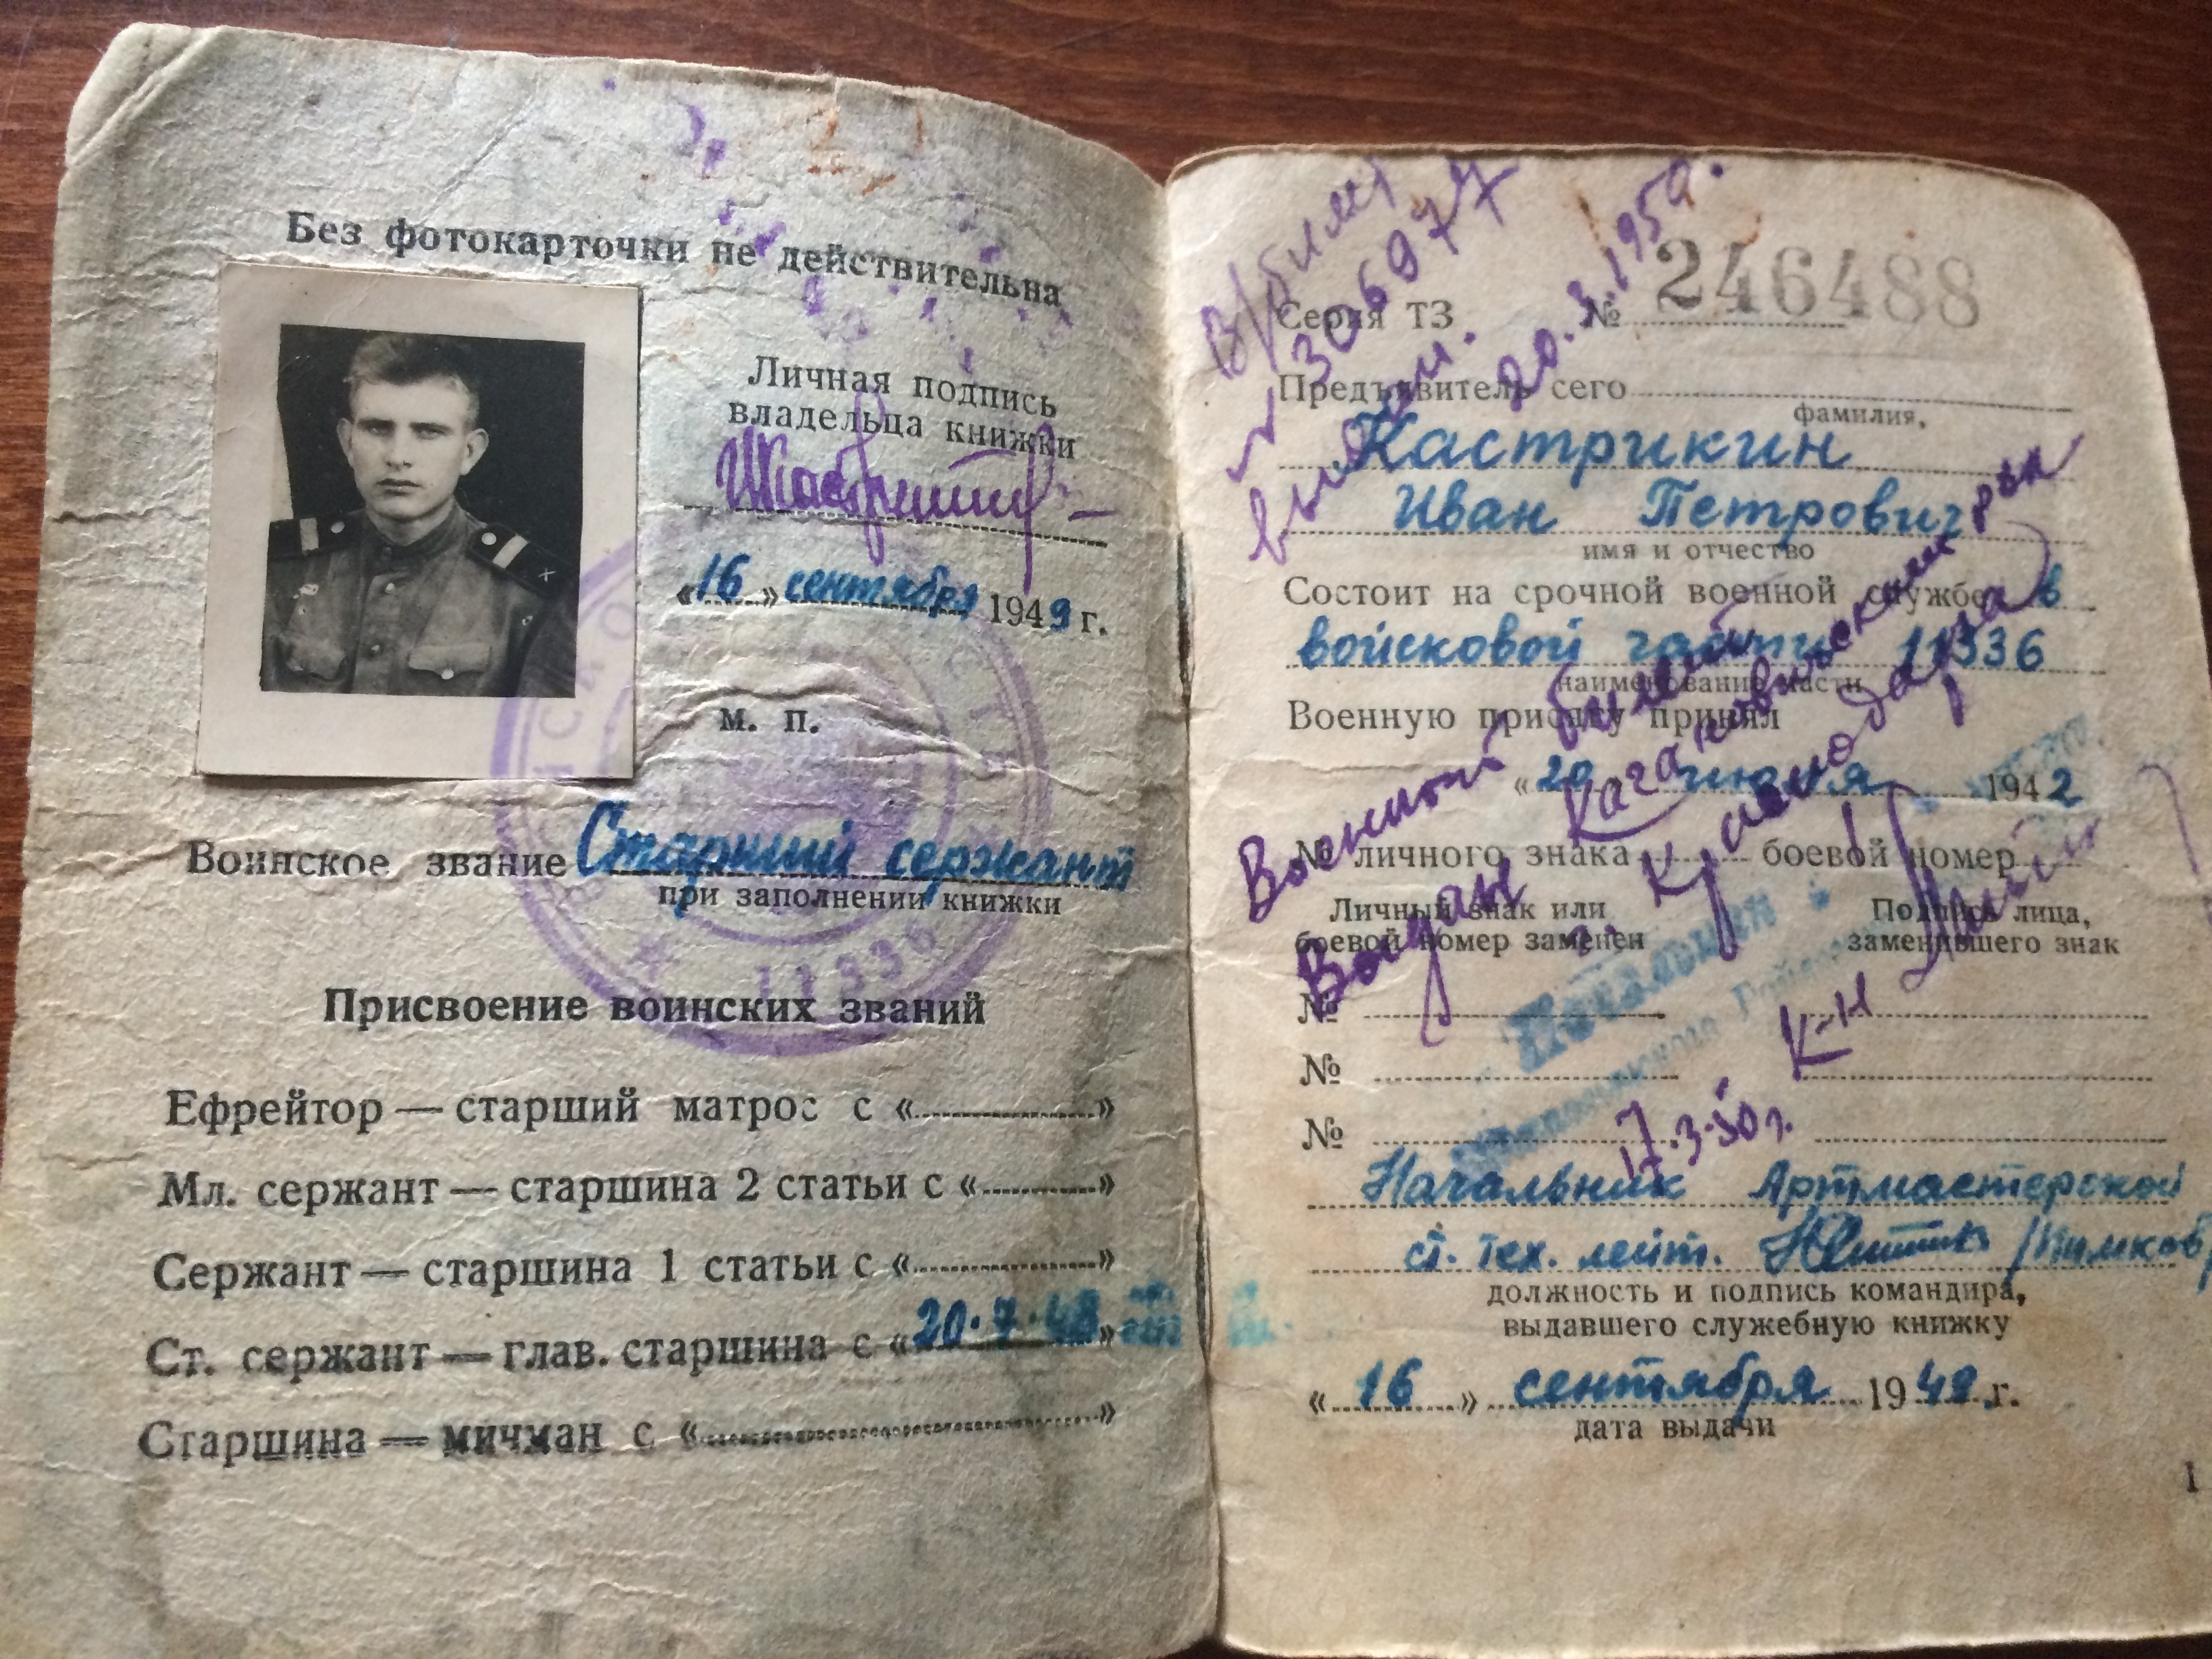 Без фотокарточки не действительна
Личная подпись
владельца книжки
«16» сентября 1949 г.
м. п.
Воинское звание Старший сержант
при заполнении книжки
11336
Присвоение воинских званий
Ефрейтор — старший матрос с «
»
Мл. сержант — старшина 2 статьи с «
»
Сержант — старшина 1 статьи с «
»
Ст. сержант — глав. старшина с «20.7.48»
Старшина — мичман с «
»
В/билет
№ 306977
выдан.
20.3.1950.
Серия ТЗ № 246488
Предъявитель сего
фамилия,
Кастрикин
Иван Петрович
имя и отчество
Состоит на срочной военной службе в
войсковой части 11336
наименование части
Военную присягу принял
«20 июля 1942
№ личного знака боевой номер
Личный знак или
боевой номер заменен
Подпись лица,
заменившего знак
№
№
№
Военный билет
Выдан Кагановическим рвк
г. Краснодара
к-н
17.3.50 г.
Начальник Артмастерской
ст. тех. лейт.
должность и подпись командира,
выдавшего служебную книжку
«16» сентября 1949 г.
дата выдачи
1